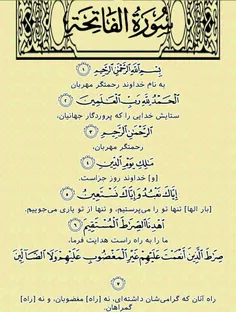 سُورَةُ الفَاتِحَةِ
بِسْمِ ٱللَّهِ ٱلرَّحْمَٰنِ ٱلرَّحِيمِ ١
به نام خداوند رحمتگر مهربان
ٱلْحَمْدُ لِلَّهِ رَبِّ ٱلْعَٰلَمِينَ ٢
ستایش خدایی را که پروردگار جهانیان،
ٱلرَّحْمَٰنِ ٱلرَّحِيمِ ٣
رحمتگر مهربان،
مَٰلِكِ يَوْمِ ٱلدِّينِ ٤
[و] خداوند روز جزاست.
إِيَّاكَ نَعْبُدُ وَإِيَّاكَ نَسْتَعِينُ ٥
[بار الها] تنها تو را می‌پرستیم، و تنها از تو یاری می‌جوییم.
ٱهْدِنَا ٱلصِّرَٰطَ ٱلْمُسْتَقِيمَ ٦
ما را به راه راست هدایت فرما،
صِرَٰطَ ٱلَّذِينَ أَنْعَمْتَ عَلَيْهِمْ غَيْرِ ٱلْمَغْضُوبِ عَلَيْهِمْ وَلَا ٱلضَّآلِّينَ
٧
راه آنان که گرامی‌شان داشته‌ای، نه [راه] مغضوبان، و نه [راه]
گمراهان.